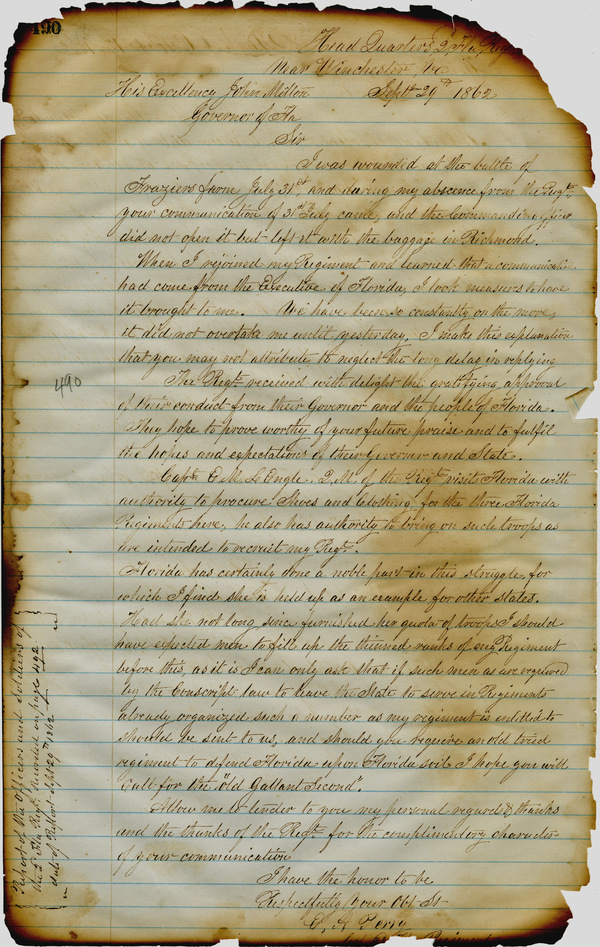 490
Head Quarters 2, Fla, Reg
Near Winchester, Va
His Excellency John Milton Septr 29th 1862
Governor of Fla
Sir
I was wounded at the battle of
Fraziers farm, July 31st, and during my abscence from the Regt
your communication of 31st July came, and the Commanding officer
did not open it but left it with the baggage in Richmond.
When I rejoined my Regiment and learned that a communication
had come from the Executive of Florida, I took measures to have
it brought to me. We have been so constantly on the move,
it did not overtake me until yesterday, I make this explanation
that you may not attribute to neglect the long delay in replying
490
The Regt. received with delight the gratifying approval
of their conduct from their Governor and the people of Florida.
They hope to prove worthy of your future praise and to fulfil
the hopes and expectations of their Governor and State.
Capt. E. M. L'Engle. Q. M. of the Regt. visits Florida with
authority to procure Shoes and Clothing for the three Florida
Regiments here, he also has authority to bring on such troops as
are intended to recruit my Regt.
Florida has certainly done a noble part in this struggle, for
which I find she is held up as an example for other States.
Had she not long since furnished her quota of troops I should
have expected men to fill up the thinned ranks of my Regiment
before this, as it is I can only ask that if such men as are required
by the Conscript law to leave the State to serve in Regiments
already organized such a number as my regiment is entitled to
should be sent to us, and should you require an old tried
regiment to defend Florida upon Florida soil I hope you will
Call for the "old Gallant Second".
Allow me to tender to you my personal regards & thanks
and the thanks of the Regt. for the complimentary character
of your communication
I have the honor to be
Respectfully Your Obt St
E. A. Perry
Report of the Officers and Soldiers of
the 2d Fla. Regt. recorded on page 492
date of Report Sept 29th 1862